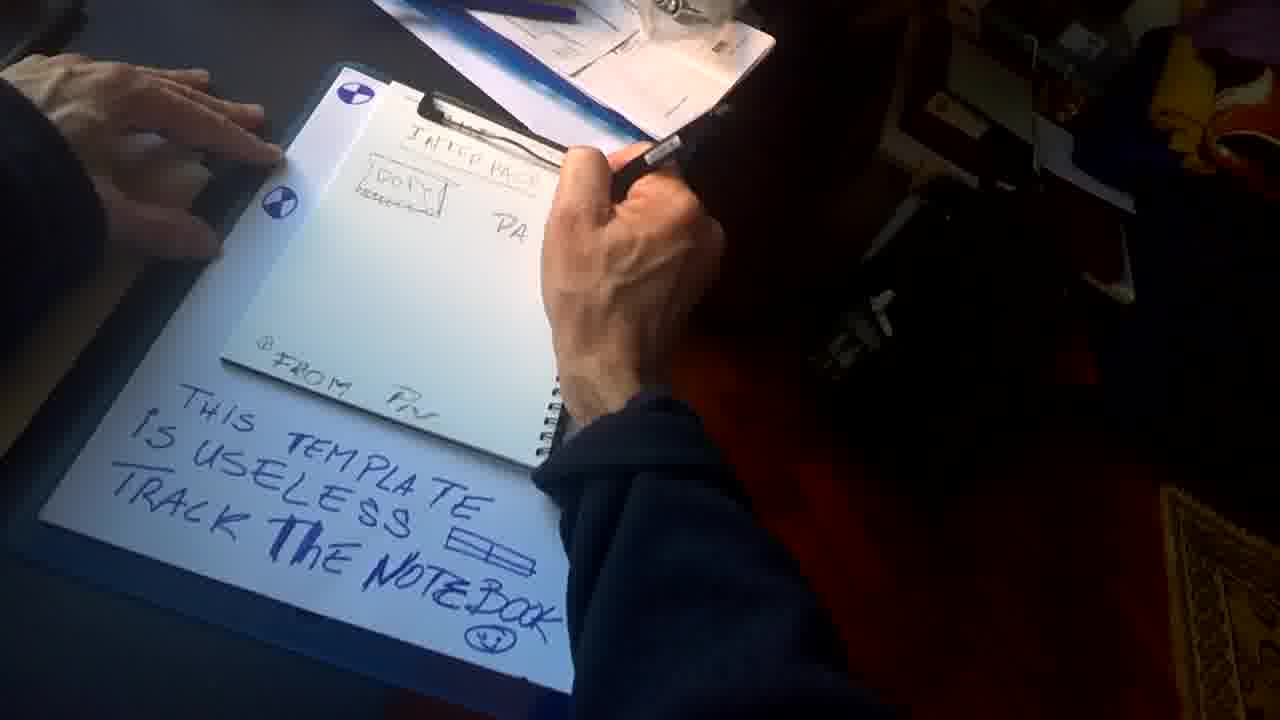 INTERFACE
COPY
PA
① FROM
THIS TEMPLATE
iS USELESS
TRACK ThE NOTEBOOK